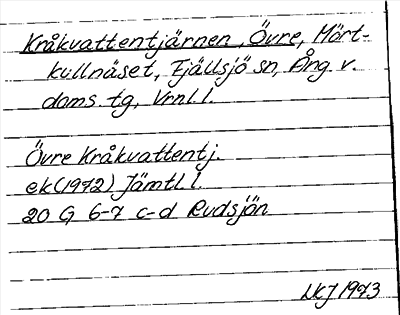 Kråkvattentjärnen, Övre, Mört-
kullnäset, Fjällsjö sn, Ång. v.
doms. tg, Vrnl. l.
Övre Kråkvattentj.
ek (1972) Jämtl. l.
20 G 6-7 c-d Rudsjön
1973